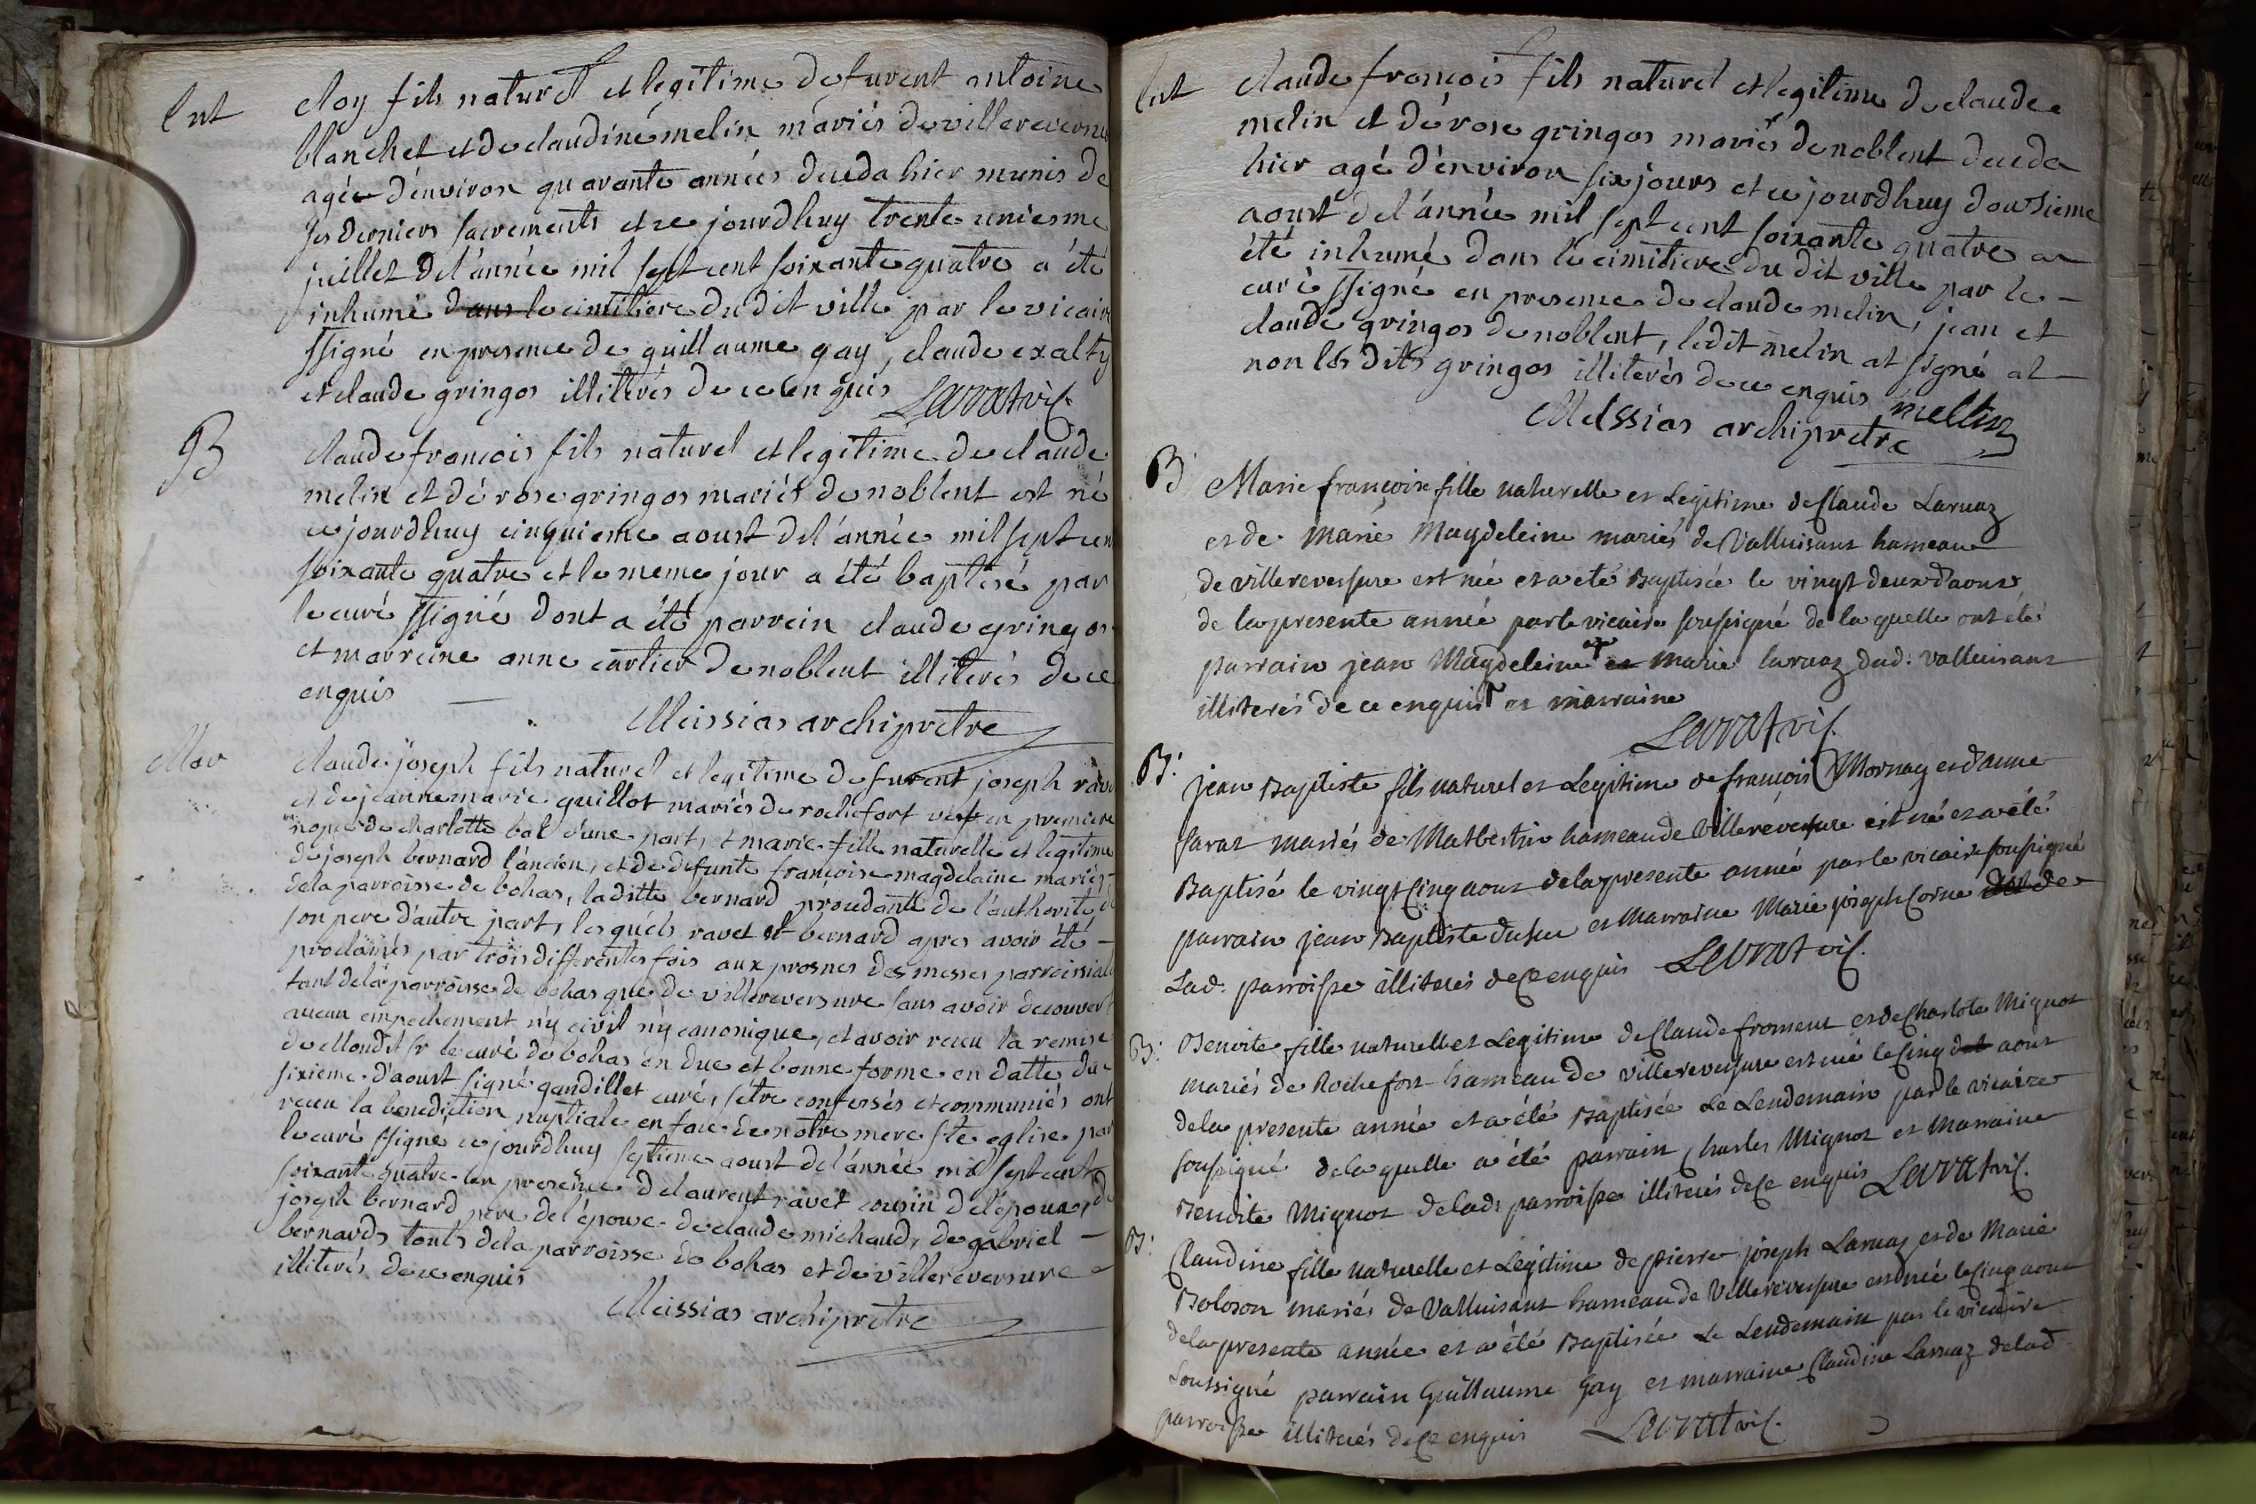 Ent
eloy fils naturel et legitime de furent antoine
blanchet et de claudine melin mariés de villereversure
agée d'environ quarante années deceda hier munis de
ses derniers sacrements et ce jourdhuy trente uniesme
juillet de l'année mil sept cent soixante quatre a été
inhumé dans le cimitiere du dit ville par le vicaire
ssigné en presence de guillaume gay, claude exalty
et claude gringos illiterés de ce enquis Lavrat vic.
B
claude francois fils naturel et legitime de claude
melin et de rose gringos mariés de noblent est né
ce jourdhuy cinquiesme aoust de l'année mil sept cent
soixante quatre et le meme jour a été baptisé par
le curé ssigné dont a été parrein claude gringos
et marreine anne cartier de noblent illiterés de ce
enquis
Meissias archiprêtre
Mar
claude joseph fils naturel et legitime de furent joseph ravet
et de jeanne marie guillot mariés de rochefort vef en premiere
nopce de charlotte bal d'une part, et marie fille naturelle et legitime
de joseph bernard l'ancien, et de defunte francoise magdelaine mariés
de la parroisse de bohas, laditte bernard procedante de l'authorité de
son pere d'autre part, lesquels ravet et bernard apres avoir été
proclamés par trois differentes fois aux prosnes des messes parroissiales
tant de la parroisse de bohas que de villereversure sans avoir decouvert
aucun empechement n'y civil n'y canonique, et avoir receu la remise
de Mondit sr le curé de bohas en due et bonne forme en datte du
sixieme d'aoust signé gandillet curé, s'etre confessés et communiés ont
receu la benediction nuptiale en face de notre mere ste eglise par
le curé ssigné ce jourdhuy septieme aoust de l'année mil sept cent
soixante quatre en presence de laurent ravet cousin de l'epoux, de
joseph bernard pere de l'epouse de claude michaud, de gabriel
bernard, touts de la parroisse de bohas et de villereversure
illiterés de ce enquis
Meissias archiprêtre
Ent
claude francois fils naturel et legitime de claude
melin et de rose gringos mariés de noblent deceda
hier agé d'environ six jours et ce jourdhuy dousieme
aoust de l'année mil sept cent soixante quatre a
été inhumé dans le cimitiere du dit ville par le
curé ssigné en presence de claude melin, jean et
claude gringos de noblent, ledit melin at signé at
non les dits gringos illiterés de ce enquis mellin
Meissias archiprêtre
B
Marie françoise fille naturelle et Legitime de Claude Laruaz
et de marie Magdeleine mariés de Valluisant hameau
de villereversure est née et a eté Baptisée le vingt deux d'aout
de la presente année par le vicaire soussigné de la quelle ont été
parrain jean Magdeleine et marie laruaz dud: valluisant
illiterés de ce enquis et marraine
Lavrat vic.
B:
jean Baptiste fils naturel et Legitime de françois Mornay et d'anne
Saraz mariés de hameau de Villereversure est né et a été
Baptisé le vingt Cinq aout de la presente année par le vicaire soussigné
parrain jean Baptiste et Marraine Marie joseph Corne de
Lad: parroisse illiterés de Ce enquis Lavrat vic.
B:
Benoite fille naturelle et Legitime de Claude froment et de Charlote Mignot
mariés de Rochefort hameau de villereversure est née le Cinq aout
de la presente année et a été Baptisée Le Lendemain par le vicaire
soussigné de la quelle a été parrain Charles Mignot et Marraine
Benoite Mignot de lad: parroisse illiterés de Ce enquis Lavrat vic.
B:
Claudine fille naturelle et Legitime de pierre joseph Laruaz et de Marie
Boloson mariés de Valluisant hameau de Villereversure est née le Cinq aout
de la presente année et a été Baptisée Le Lendemain par le vicaire
Soussigné parrain Guillaume Gay et marraine Claudine Laruaz de lad
parroisse illiterés de Ce enquis Lavrat vic.